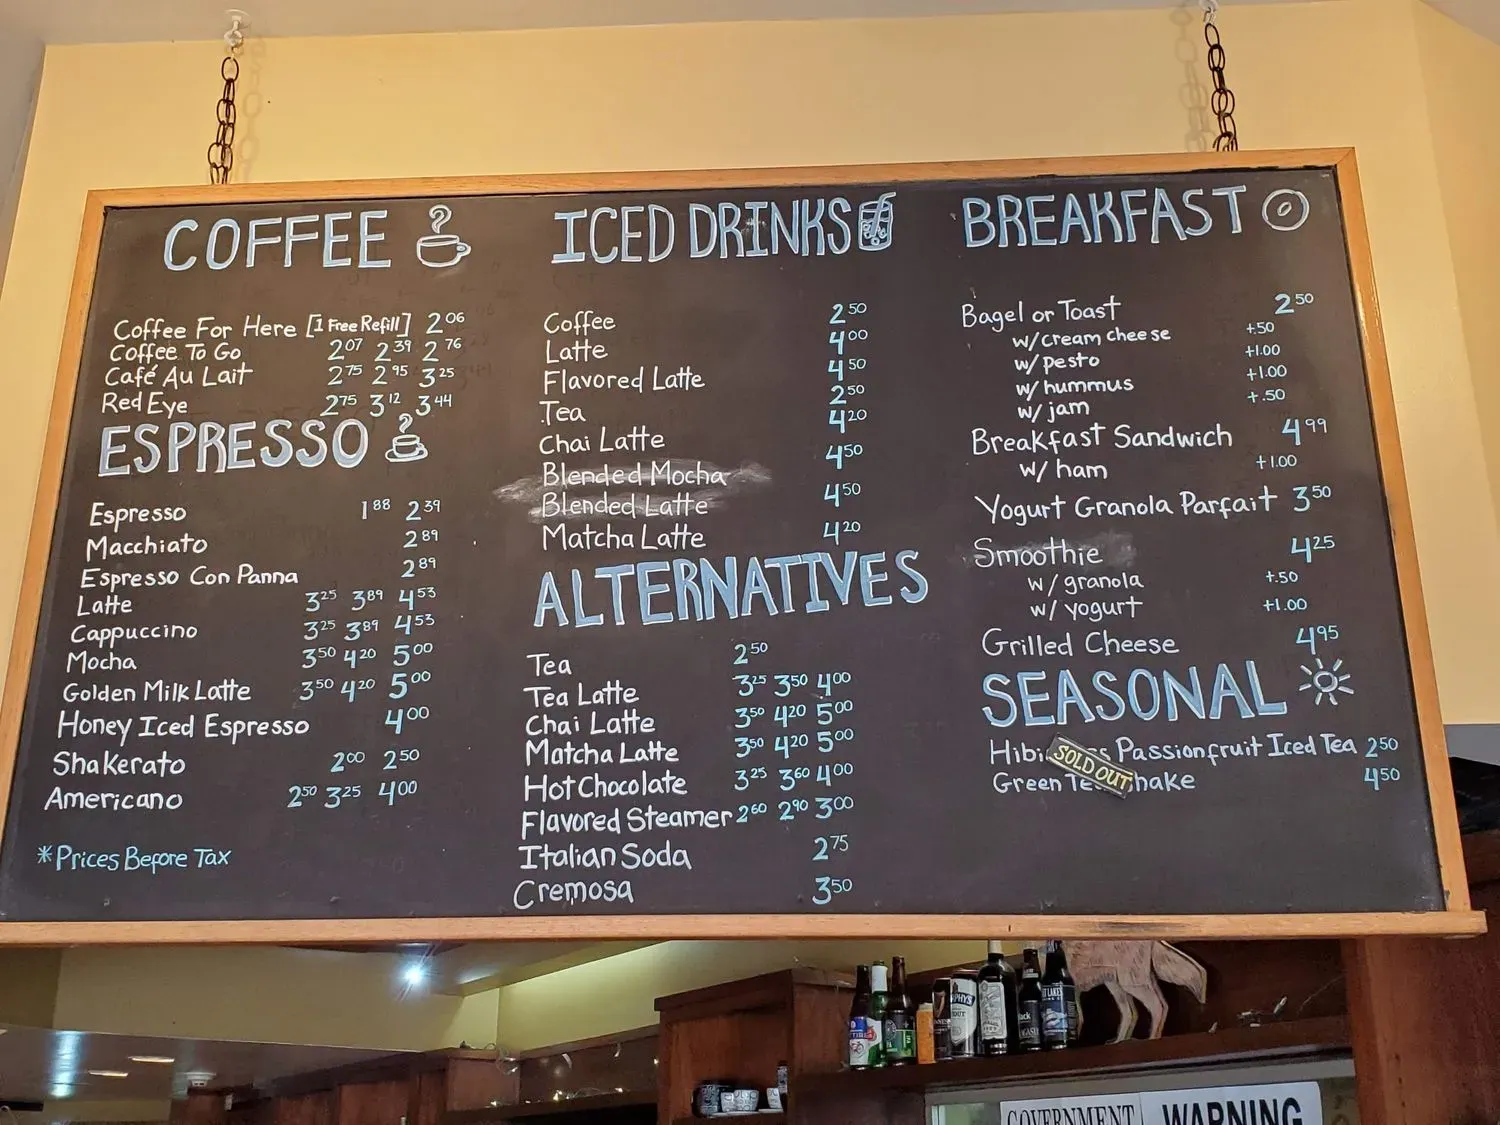 COFFEE
Coffee For Here [1 Free Refill] 2.06
Coffee To Go 2.07 2.39 2.76
Café Au Lait 2.75 2.95 3.25
Red Eye 2.75 3.12 3.44
ESPRESSO
Espresso 1.88 2.39
Macchiato 2.89
Espresso Con Panna 2.89
Latte 3.25 3.89 4.53
Cappuccino 3.25 3.89 4.53
Mocha 3.50 4.20 5.00
Golden Milk Latte 3.50 4.20 5.00
Honey Iced Espresso 4.00
Shakerato 2.00 2.50
Americano 2.50 3.25 4.00
*Prices Before Tax
ICED DRINKS
Coffee 2.50
Latte 4.00
Flavored Latte 4.50
Tea 2.50
Chai Latte 4.20
Blended Mocha 4.50
Blended Latte 4.50
Matcha Latte 4.20
ALTERNATIVES
Tea 2.50
Tea Latte 3.25 3.50 4.00
Chai Latte 3.50 4.20 5.00
Matcha Latte 3.50 4.20 5.00
Hot Chocolate 3.25 3.60 4.00
Flavored Steamer 2.60 2.90 3.00
Italian Soda 2.75
Cremosa 3.50
BREAKFAST
Bagel or Toast 2.50
w/cream cheese +.50
w/pesto +1.00
w/hummus +1.00
w/jam +.50
Breakfast Sandwich 4.99
w/ ham +1.00
Yogurt Granola Parfait 3.50
Smoothie 4.25
w/granola +.50
w/ yogurt +1.00
Grilled Cheese 4.95
SEASONAL
Passionfruit Iced Tea 2.50
SOLD OUT
Green 4.50
GOVERNMENT
WARNING